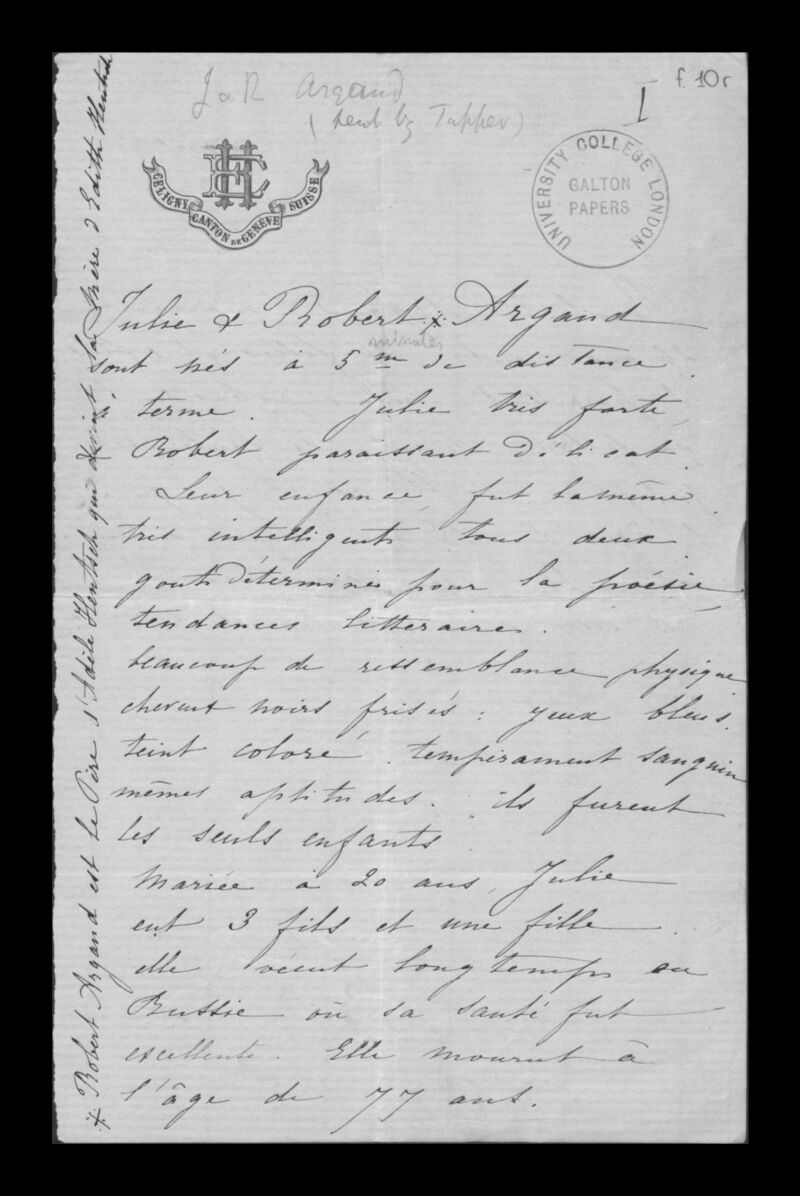 f. 10r
I
J & R Argand
(sent by Tupper)
CELIGNY
CANTON DE GENÈVE
SUISSE
UNIVERSITY COLLEGE LONDON
GALTON
PAPERS
Julie & Robert ※ Argand
minutes
sont nés à 5 m de distance
à terme. Julie très forte,
Robert paraissant délicat.
Leur enfance, fut la même
très intelligents tous deux
gouts déterminés pour la poésie,
tendances litteraires.
beaucoup de ressemblance physique
cheveux noirs frisés : yeux bleus.
teint coloré. tempérament sanguin
mêmes aptitudes. ils furent
les seuls enfants.
Mariée à 20 ans, Julie
eut 3 fils et une fille.
elle vécut longtemps en
Russie où sa santé fut
excellente. Elle mourut à
l'âge de 77 ans.
※ Robert Argand est le Père d'Adèle Hentsch qui devint la Mère d'Edith Hentsch